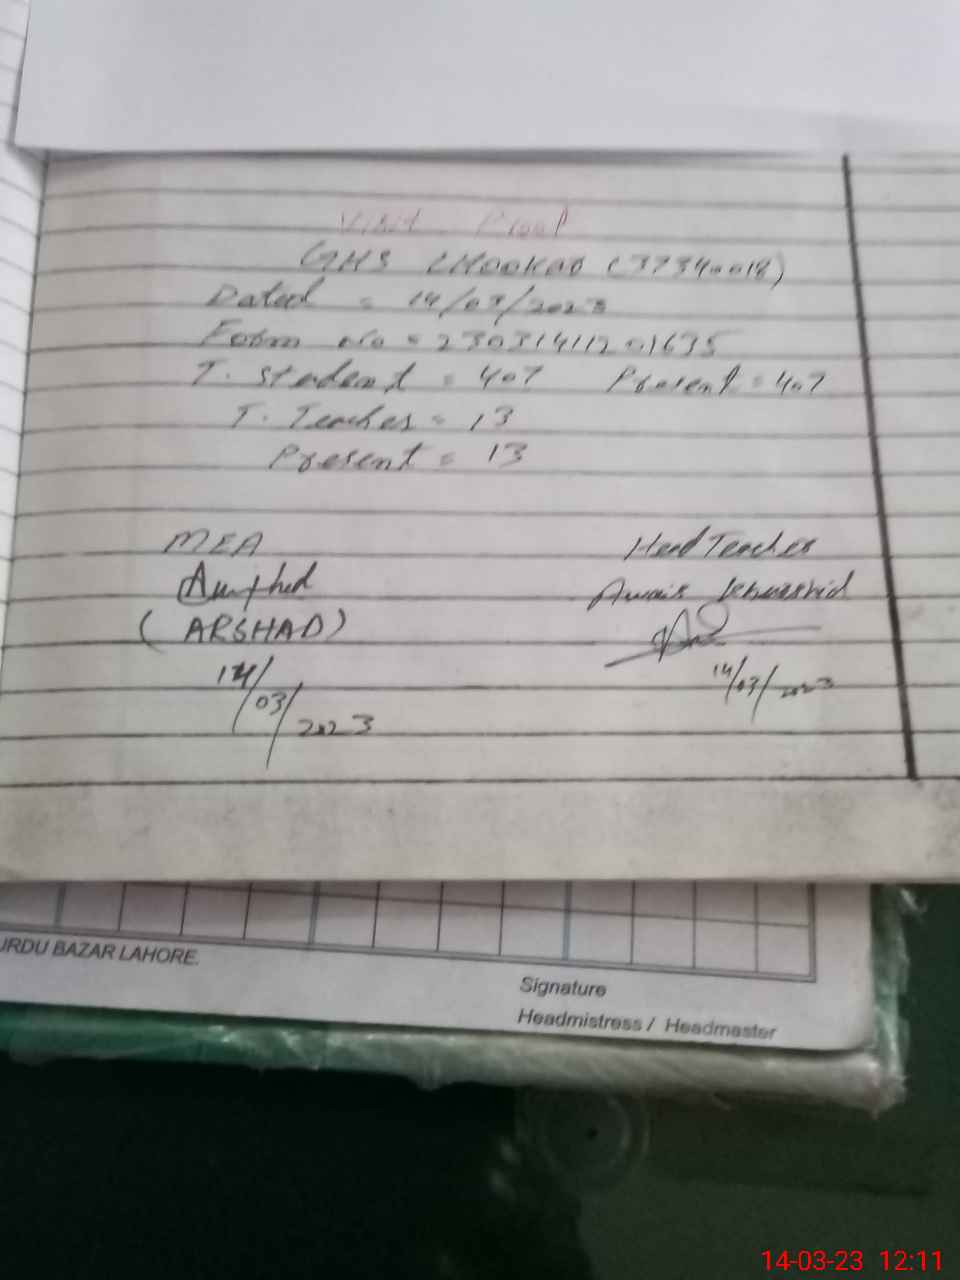 Visit Proof
GHS CHOOKAR (37340018)
Dated = 14/03/2023
Form No = 23031411201635
T. student = 407 Present = 407
T. Teacher = 13
Present = 13
MEA
Head Teacher
Awais Khurshid
(ARSHAD)
14/03/2023
14/03/2023
URDU BAZAR LAHORE.
Signature
Headmistress / Headmaster
14-03-23 12:11